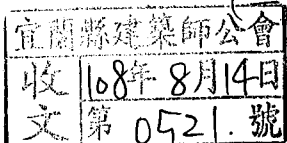 宜蘭縣建築師公會
收文
108年8月14日
第0521.號